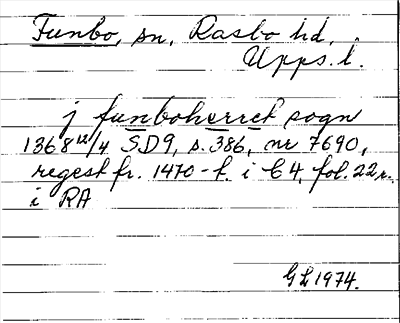 Funbo, sn, Rasbo hd,
Upps. l.
j funboherret sogn
1368 12/4 SD9, s. 386, nr 7690,
regest fr. 1470-t. i C4, fol. 22r.
i RA
GL 1974.